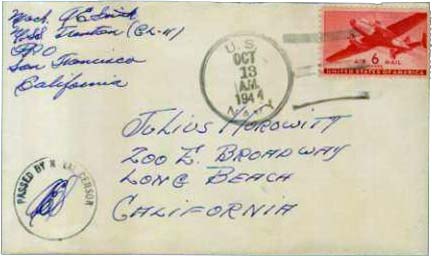 Mach. J E Smith
USS Trenton (CL-11)
FPO
San Francisco
California
U.S.
OCT
13
A.M.
1944
Navy
6
AIR MAIL
UNITED STATES OF AMERICA
JULIUS HOROWITT
200 E. BROADWAY
LONG BEACH
CALIFORNIA
PASSED BY NAVAL CENSOR